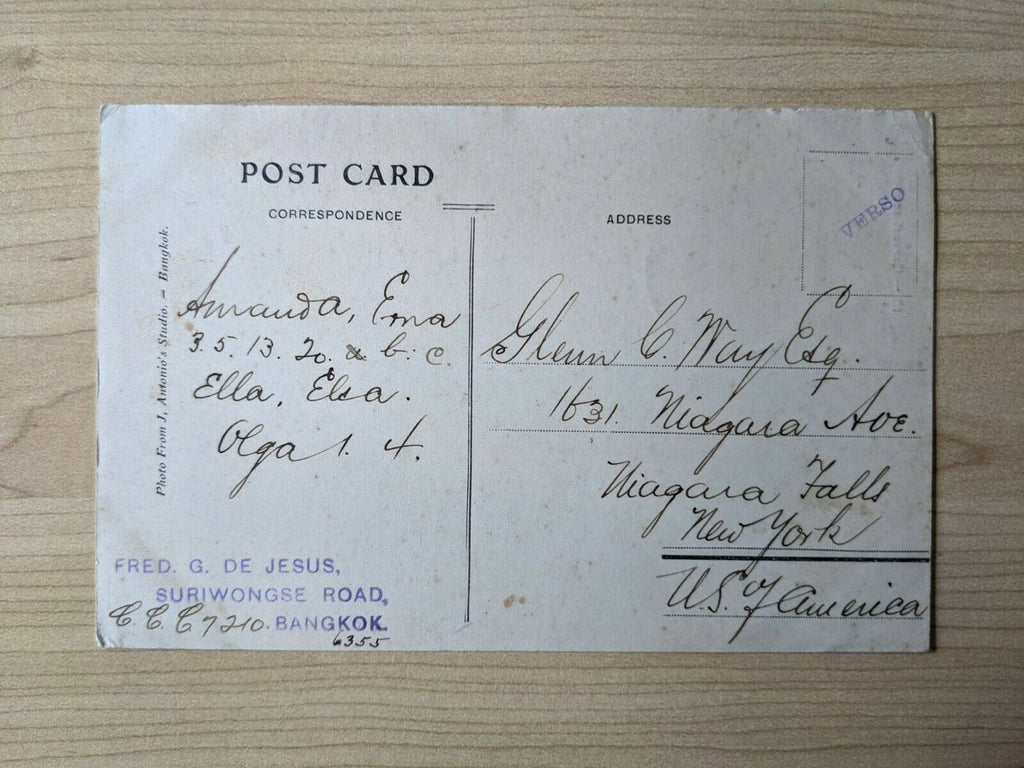 POST CARD
CORRESPONDENCE
ADDRESS
VERSO
Photo From J, Antonio's Studio. – Bangkok.
Amanda, Erna
3. 5. 13. 20. & b. c.
Ella, Elsa.
Olga 1. 4.
Glenn C. Way Esq.
1631. Niagara Ave.
Niagara Falls
New York
U.S. of America
FRED. G. DE JESUS,
SURIWONGSE ROAD,
C.C.C 7210. BANGKOK.
6355